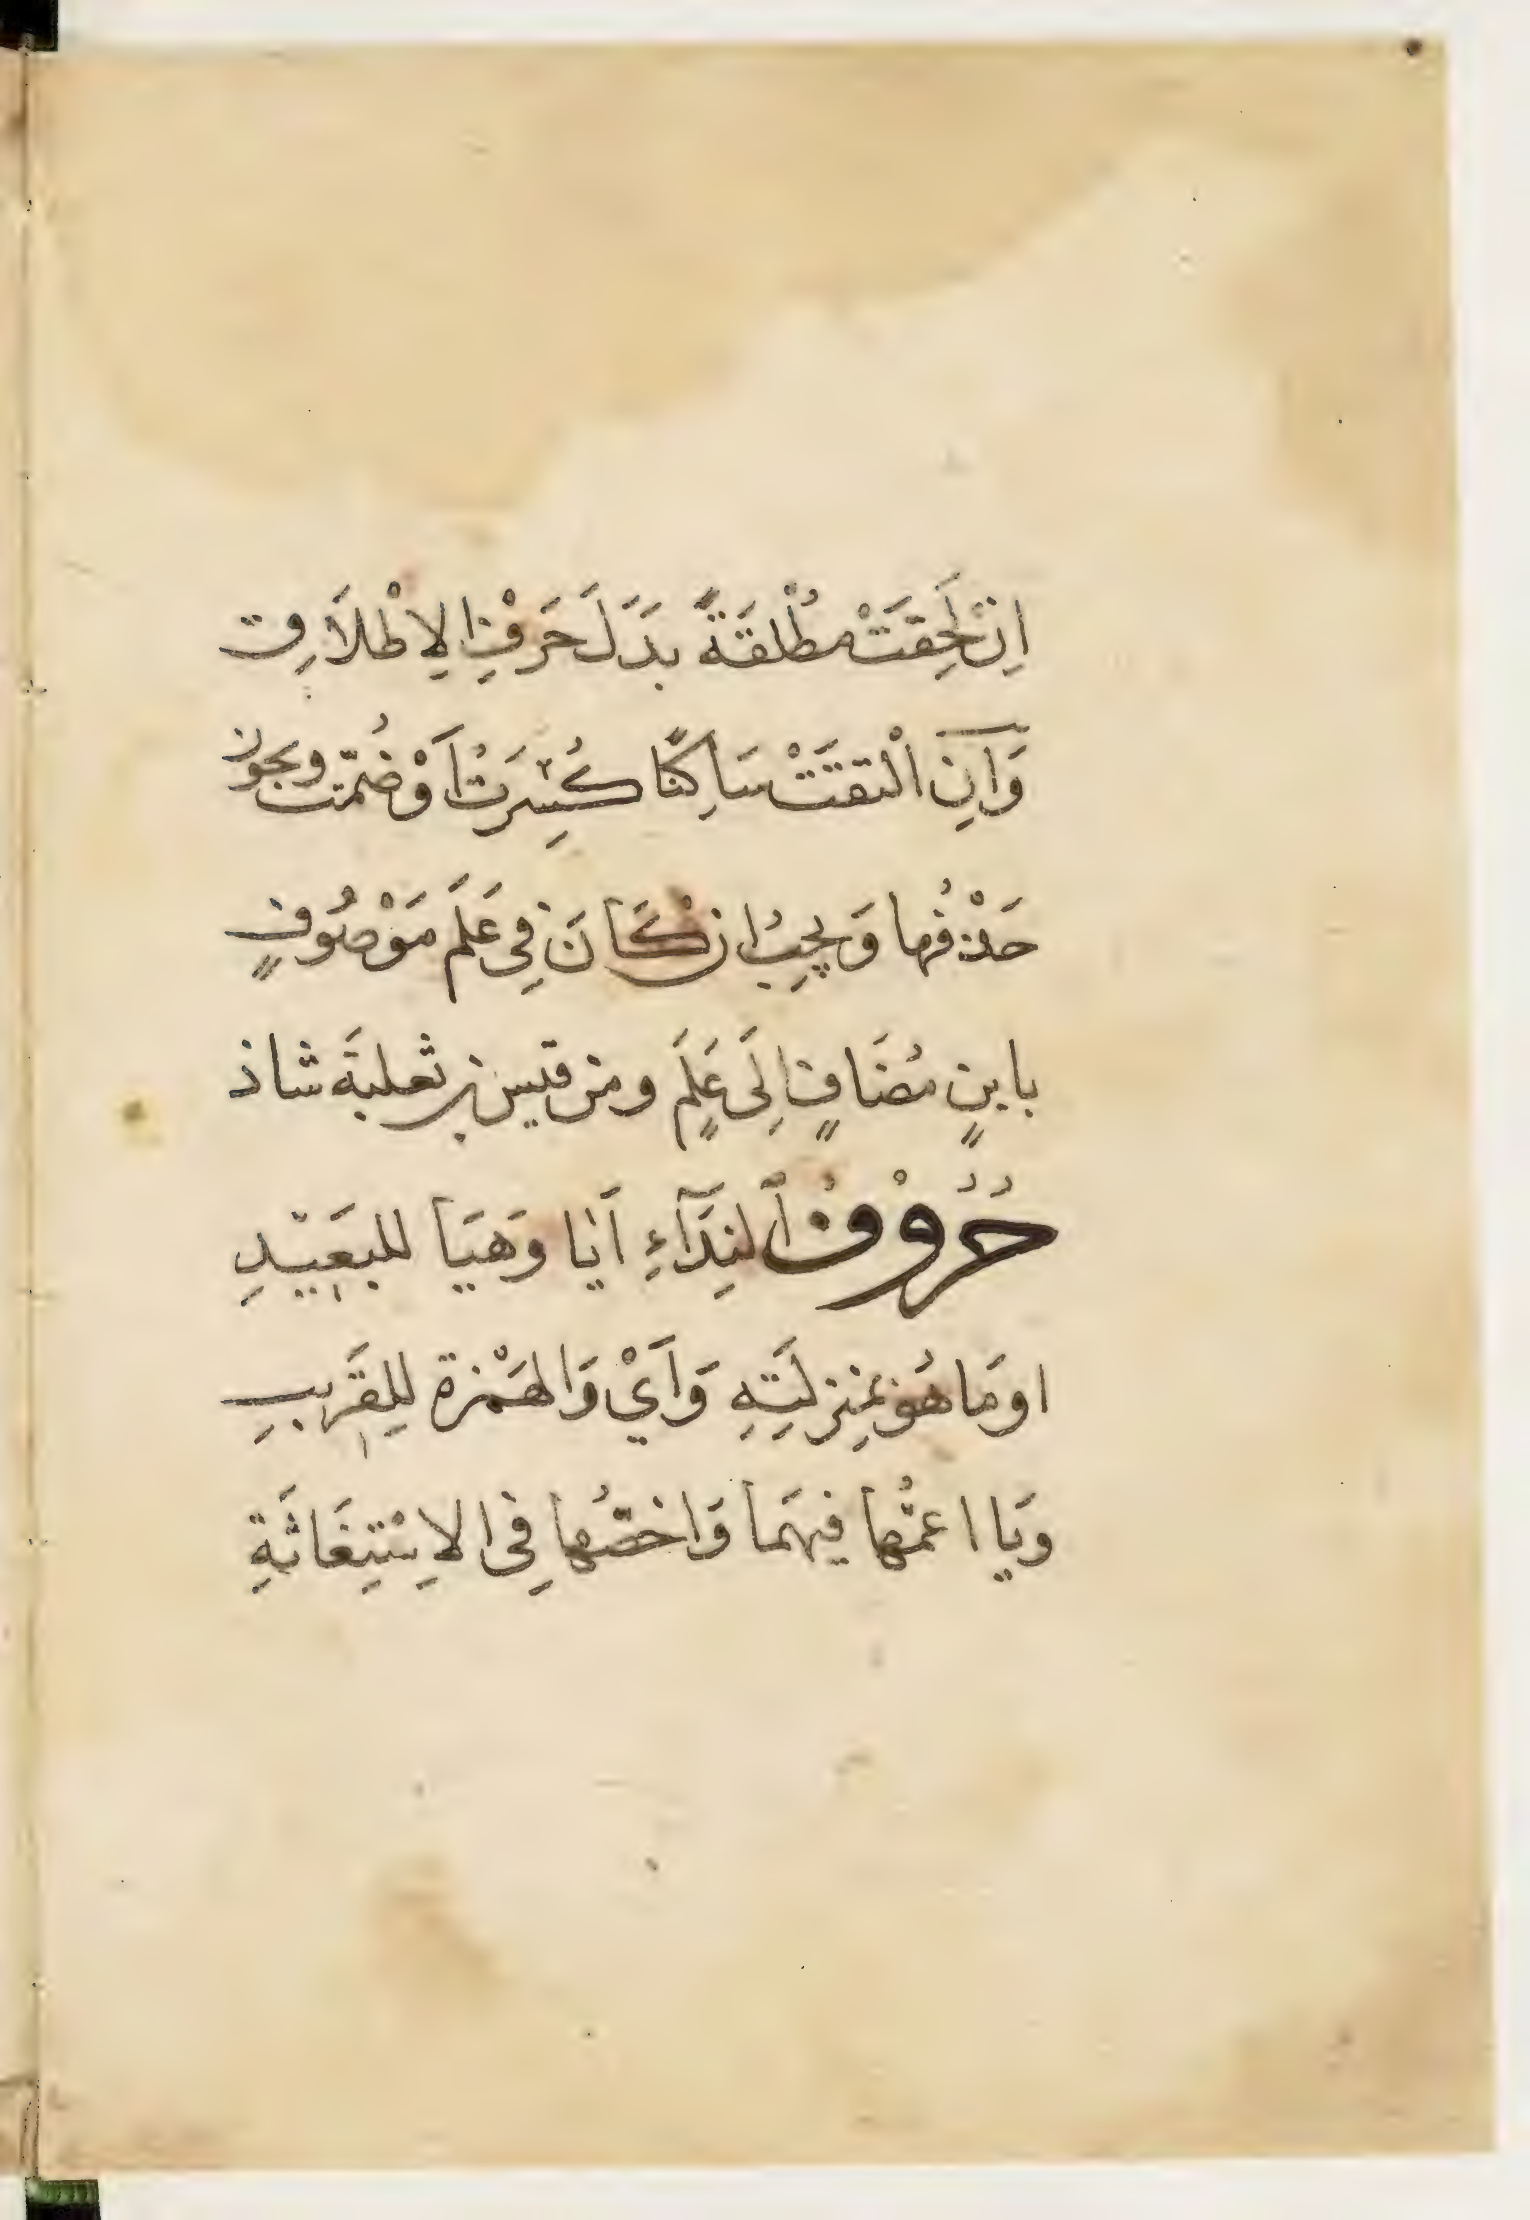 اِنْ لَحِقَتْ مُطْلَقَةً بَدَلَ حَرْفِ الِاطْلَاقِ
وَاِنِ الْتَقَتْ سَاكِنًا كُسِرَتْ اَوْ ضُمَّت ويجوز
حَذْفُها وَيجِبُ ان كَانَ فِى عَلَمٍ مَوْصُوفٍ
بابنٍ مُضَافٍ اِلَى عَلَمٍ ومن قيس بن ثعلبةَ شاذ
حُرُوْفُ النِدَآءِ اَيَا وَهَيَا للبَعِيْدِ
او مَا هُو بمنِزلَتِهِ وَاَيْ وَالهَمْزة لِلقَرِيبِ
وَيَا اعمُّها فيهَما وَاخصُّها فِى الاِسْتِغَاثَةِ